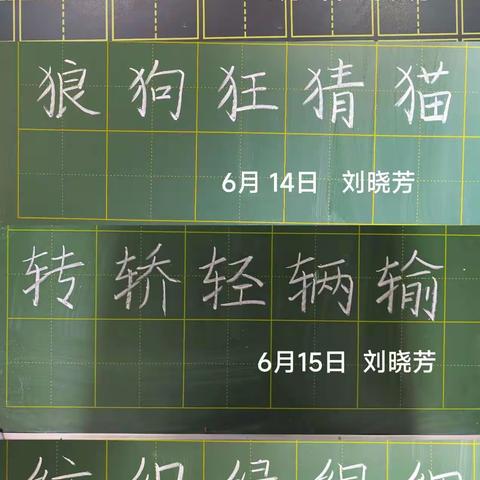 狼狗狂猜猫
6月 14日 刘晓芳
转轿轻辆输
6月15日 刘晓芳